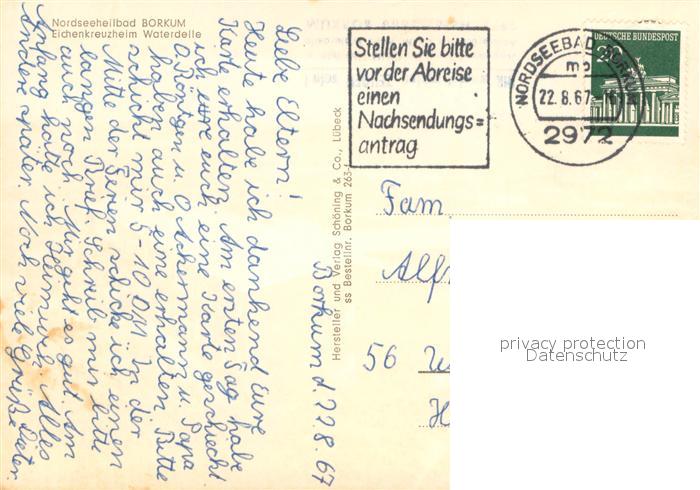 Nordseeheilbad BORKUM
Eichenkreuzheim Waterdelle
Stellen Sie bitte
vor der Abreise
einen
Nachsendungs=
antrag
NORDSEEBAD BORKUM
mb
22.8.67
2972
DEUTSCHE BUNDESPOST
Liebe Eltern!
Heute habe ich dankend Eure
Karte erhalten. Am ersten Tag habe
ich eure euch eine Karte geschiecht
O. Röntgen u. O Achermann u. Papa
haben auch eine erhalten. Bitte
schicht mir 5-10 DM. In der
Mitte der Ferien schicke ich einen
langen Brief. Schreib mir bitte
auch noch. Mir geht es gut. Am
Anfang hatte ich Heimweh. Alles
Andere später. Noch viele Grüße Dieter
Borkum d 22.8.67
Hersteller und Verlag Schöning & Co., Lübeck
ss Bestellnr. Borkum 263
Fam.
Alf
56
H
privacy protection
Datenschutz